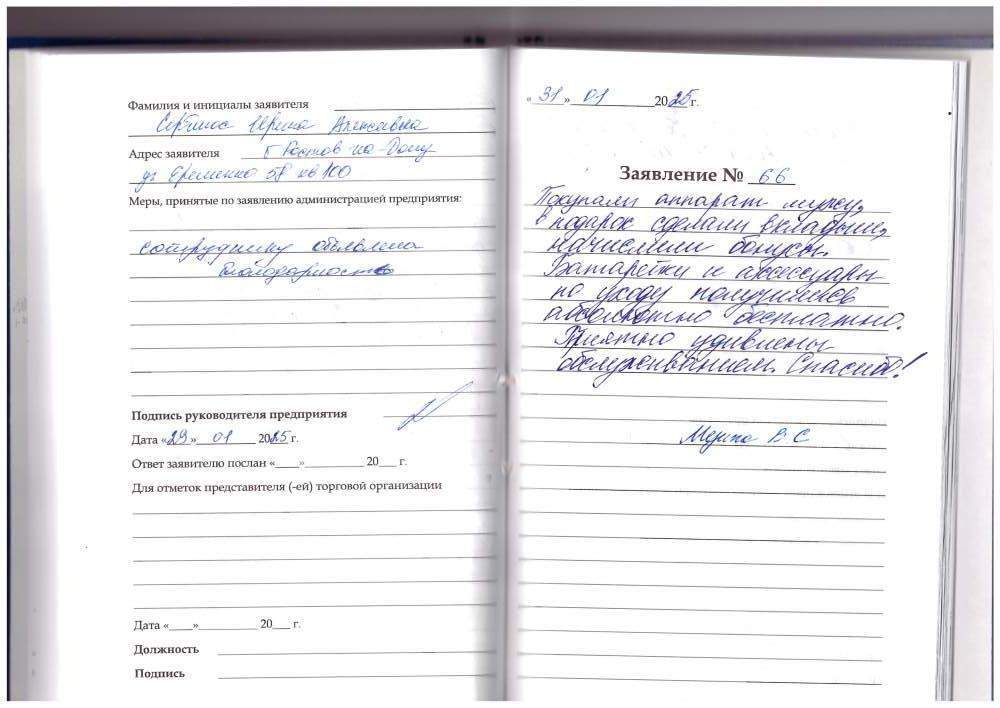 Фамилия и инициалы заявителя
Ирина Алексеевна
Адрес заявителя г Ростов-на-Дону
ул Еременко 58 кв 100
Меры, принятые по заявлению администрацией предприятия:
сотруднику объявлена
благодарность
Подпись руководителя предприятия
Дата «29» 01 2025 г.
Ответ заявителю послан «____»__________ 20___ г.
Для отметок представителя (-ей) торговой организации
Дата «____»__________ 20___ г.
Должность
Подпись
«31» 01 2025 г.
Заявление № 66
Покупали аппарат мужу,
в подарок сделали вкладыши,
начислили бонусы.
Батарейки и аксессуары
по уходу получили
абсолютно бесплатно.
Приятно удивлены
обслуживанием. Спасибо!
В С